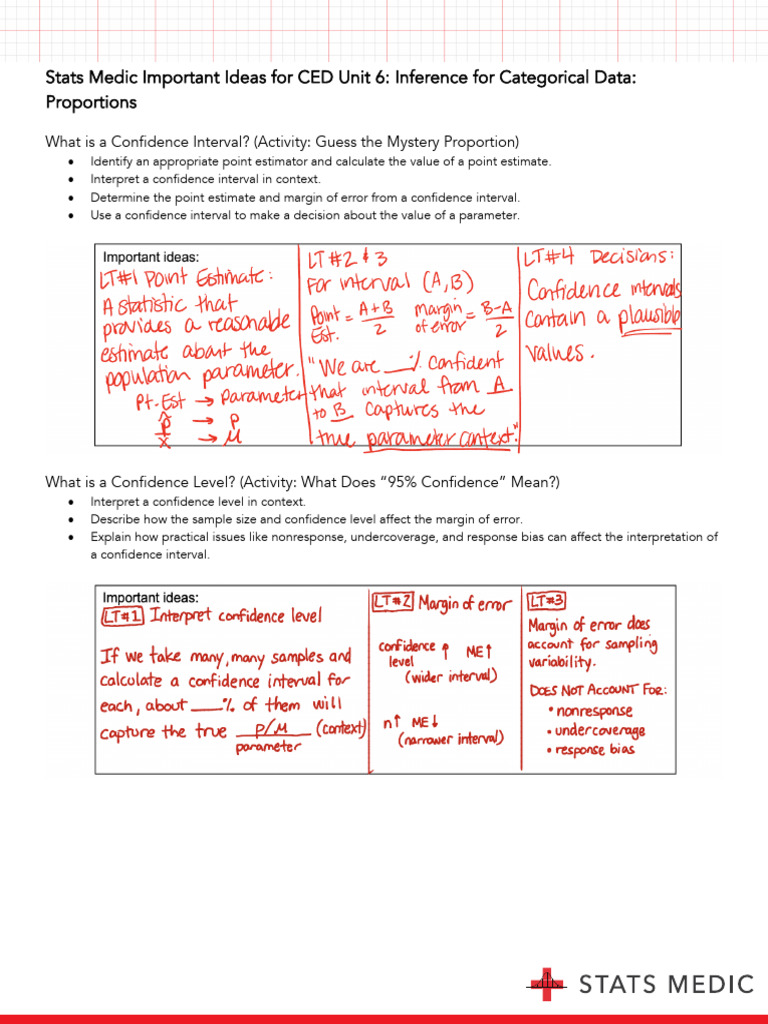 Stats Medic Important Ideas for CED Unit 6: Inference for Categorical Data:
Proportions
What is a Confidence Interval? (Activity: Guess the Mystery Proportion)
• Identify an appropriate point estimator and calculate the value of a point estimate.
• Interpret a confidence interval in context.
• Determine the point estimate and margin of error from a confidence interval.
• Use a confidence interval to make a decision about the value of a parameter.
Important ideas:
LT#1 Point Estimate:
A statistic that
provides a reasonable
estimate about the
population parameter.
Pt. Est → Parameter
p̂ → p
x̄ → μ
LT #2 & 3
For interval (A,B)
Point Est. = A+B / 2 margin of error = B-A / 2
"We are ___% confident
that interval from A
to B captures the
true parameter context."
LT#4 Decisions:
Confidence intervals
contain a plausible
values.
What is a Confidence Level? (Activity: What Does “95% Confidence” Mean?)
• Interpret a confidence level in context.
• Describe how the sample size and confidence level affect the margin of error.
• Explain how practical issues like nonresponse, undercoverage, and response bias can affect the interpretation of
a confidence interval.
Important ideas:
LT#1 Interpret confidence level
If we take many, many samples and
calculate a confidence interval for
each, about ____% of them will
capture the true p/μ (context)
parameter
LT#2 Margin of error
confidence level ↑ ME↑
(wider interval)
n↑ ME↓
(narrower interval)
LT#3
Margin of error does
account for sampling
variability.
DOES NOT ACCOUNT FOR:
• nonresponse
• undercoverage
• response bias
STATS MEDIC